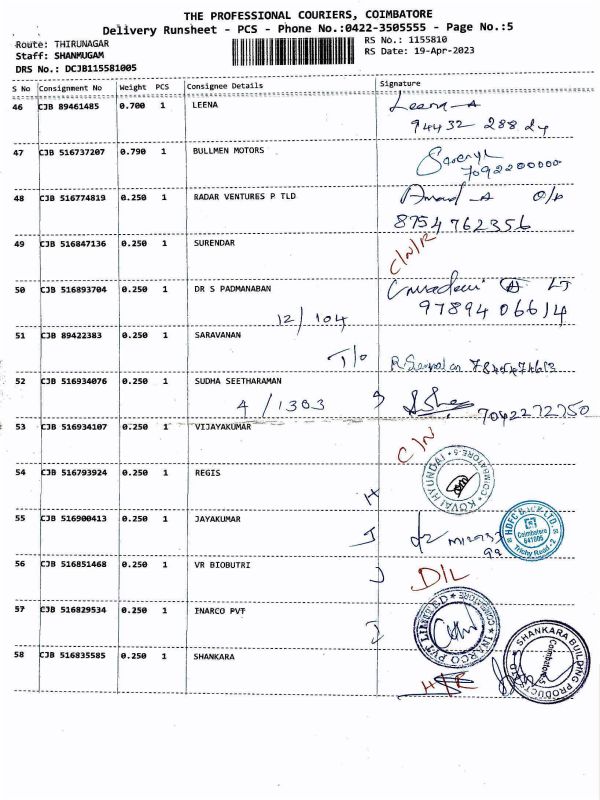 THE PROFESSIONAL COURIERS, COIMBATORE
Delivery Runsheet - PCS - Phone No.:0422-3505555 - Page No.:5
Route: THIRUNAGAR RS No.: 1155810
Staff: SHANMUGAM RS Date: 19-Apr-2023
DRS No.: DCJB115581005
S No Consignment No Weight PCS Consignee Details Signature
46 CJB 89461485 0.700 1 LEENA Leena-A
94432 288 24
47 CJB 516737207 0.790 1 BULLMEN MOTORS
7092200000
48 CJB 516774819 0.250 1 RADAR VENTURES P TLD Anand -A O/P
8754 762356
49 CJB 516847136 0.250 1 SURENDAR C/N/R
50 CJB 516893704 0.250 1 DR S PADMANABAN LT
12/104 97894 06614
51 CJB 89422383 0.250 1 SARAVANAN
T/o
52 CJB 516934076 0.250 1 SUDHA SEETHARAMAN
4 / 1303 7092272750
53 CJB 516934107 0.250 1 VIJAYAKUMAR C/N
54 CJB 516793924 0.250 1 REGIS
H KOVAI HYUNDAI * COIMBATORE-6
55 CJB 516900413 0.250 1 JAYAKUMAR
J HDFC BANK LTD. Coimbatore 641005 Trichy Road-2
56 CJB 516851468 0.250 1 VR BIOBUTRI
J D/L
57 CJB 516829534 0.250 1 INARCO PVT
J INARCO PVT LIMITED * COIMBATORE
58 CJB 516835585 0.250 1 SHANKARA
H/R SHANKARA BUILDING PRODUCTS LTD Coimbatore